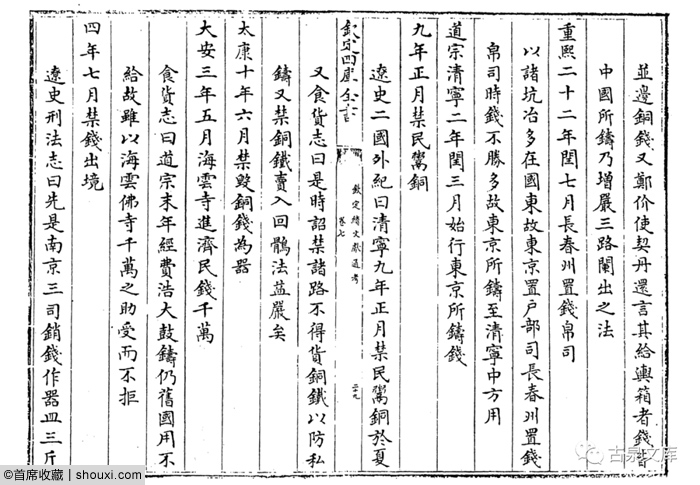 並邊銅錢又鄭价使契丹還言其給輿箱者錢皆
中國所鑄乃增嚴三路闌出之法
重熙二十二年閏七月長春州置錢帛司
以諸坑冶多在國東故東京置戶部司長春州置錢
帛司時錢不勝多故東京所鑄至清寧中方用
道宗清寧二年閏三月始行東京所鑄錢
九年正月禁民鬻銅
遼史二國外紀曰清寧九年正月禁民鬻銅於夏
欽定四庫全書
欽定續文獻通考
卷七
二十九
又食貨志曰是時詔禁諸路不得貨銅鐵以防私
鑄又禁銅鐵賣入回鶻法益嚴矣
太康十年六月禁毀銅錢為器
大安三年五月海雲寺進濟民錢千萬
食貨志曰道宗末年經費浩大鼓鑄仍舊國用不
給故雖以海雲佛寺千萬之助受而不拒
四年七月禁錢出境
遼史刑法志曰先是南京三司銷錢作器皿三斤
古泉文库
@首席收藏 | shouxi.com